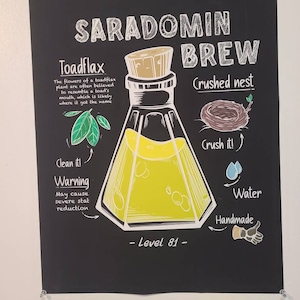 SARADOMIN
BREW
Toadflax
The flowers of a toadflax
plant are often believed
to resemble a toad's
mouth, which is likely
where it got the name!
Crushed nest
Clean it!
Crush it!
Warning
May cause
severe stat
reduction
Water
Handmade
- Level 81 -